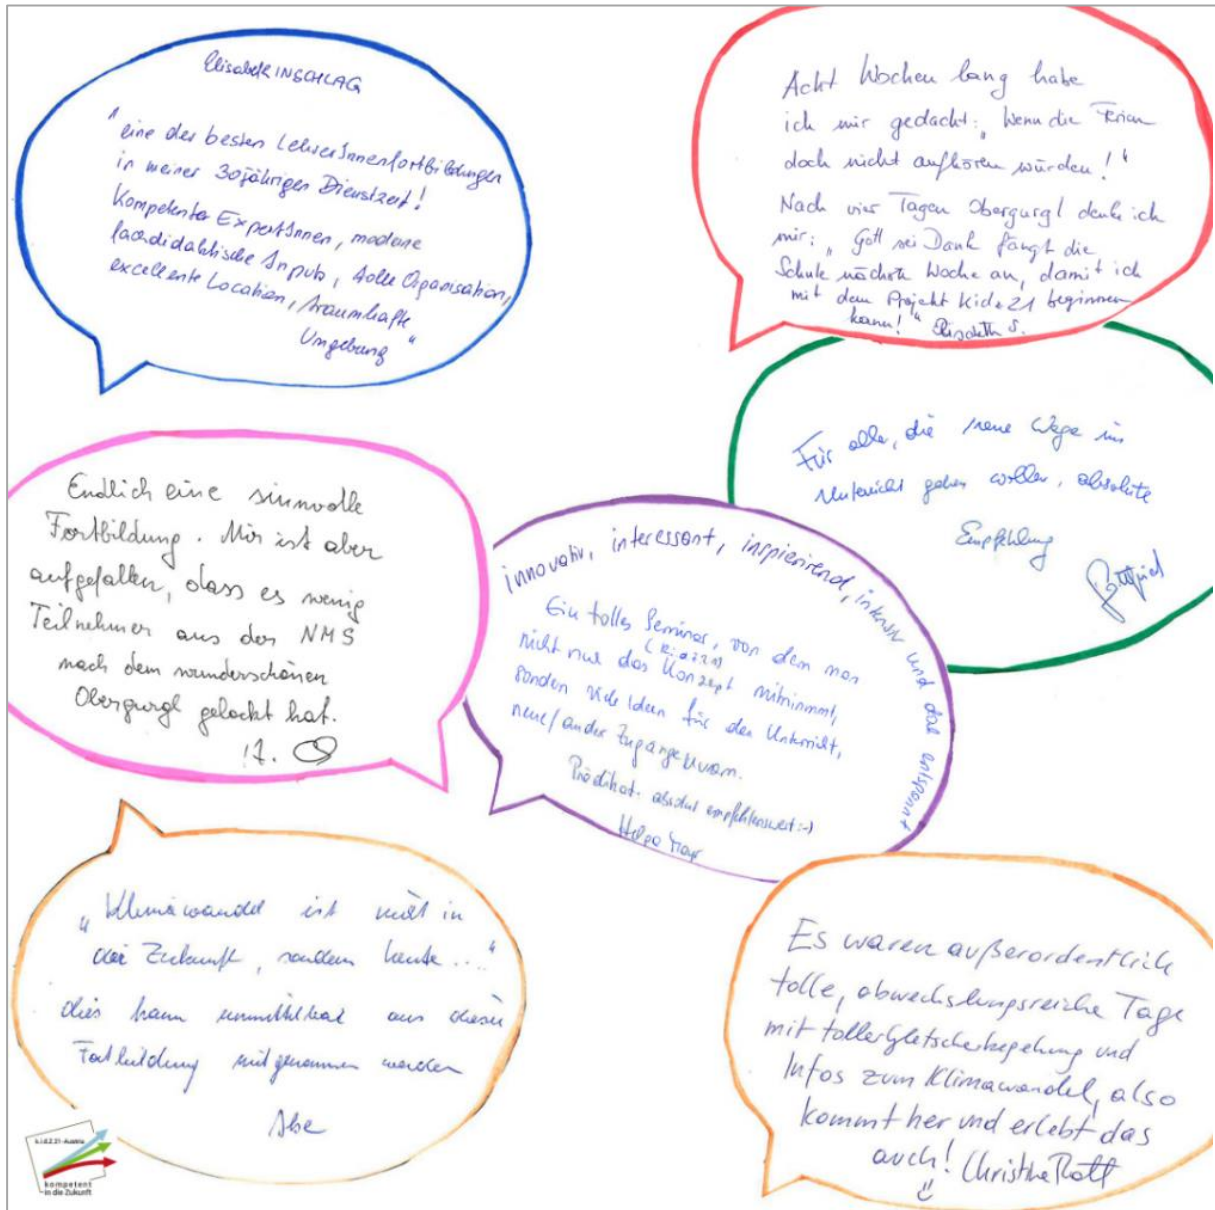 Elisabeth INSCHLAG
"eine der besten LehrerInnenfortbildungen
in meiner 30jährigen Dienstzeit!
Kompetente ExpertInnen, moderne
fachdidaktische Inputs, tolle Organisation,
excellente Location, traumhafte
Umgebung"
Acht Wochen lang habe
ich mir gedacht: „Wenn die Ferien
doch nicht aufhören würden!"
Nach vier Tagen Obergurgl denke ich
mir: „Gott sei Dank fängt die
Schule nächste Woche an, damit ich
mit dem Projekt Kidz21 beginnen
kann!" Elisabeth S.
Für alle, die neue Wege im
Unterricht gehen wollen, absolute
Empfehlung
Gottfried
Endlich eine sinnvolle
Fortbildung. Mir ist aber
aufgefallen, dass es wenig
Teilnehmer aus der NMS
nach dem wunderschönen
Obergurgl gelockt hat.
innovativ, interessant, inspirierend, intensiv und dal entspannt
Ein tolles Seminar, von dem man
(k.i.d.Z.21)
nicht nur das Konzept mitnimmt,
sondern viele Ideen für den Unterricht,
neue/andere Zugänge uvam.
Prädikat: absolut empfehlenswert :-)
Helga Mayr
„Klimawandel ist nicht in
der Zukunft, sondern heute..."
dies kann unmittelbar aus dieser
Fortbildung mitgenommen werden
Es waren außerordentlich
tolle, abwechslungsreiche Tage
mit toller Gletscherbegehung und
Infos zum Klimawandel, also
kommt her und erlebt das
auch! Christine Rott
k.i.d.Z.21-Austria
kompetent
in die Zukunft